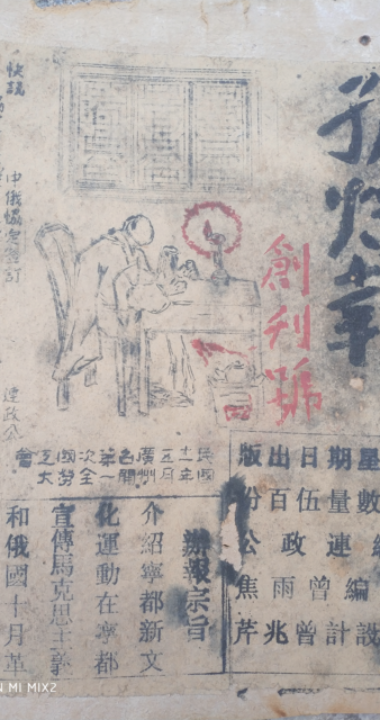 創刊號
星期日出版
數量伍百份
連政公
編曾雨焦
設計曾兆芹
民國
十一年
五月
廣州
召開
第一
次全
國勞
工大
會
辦報宗旨
介紹寧都新文
化運動在寧都
宣傳馬克思主義
和俄國十月革
快訊
中俄協定簽訂
連政公
MI MIX2